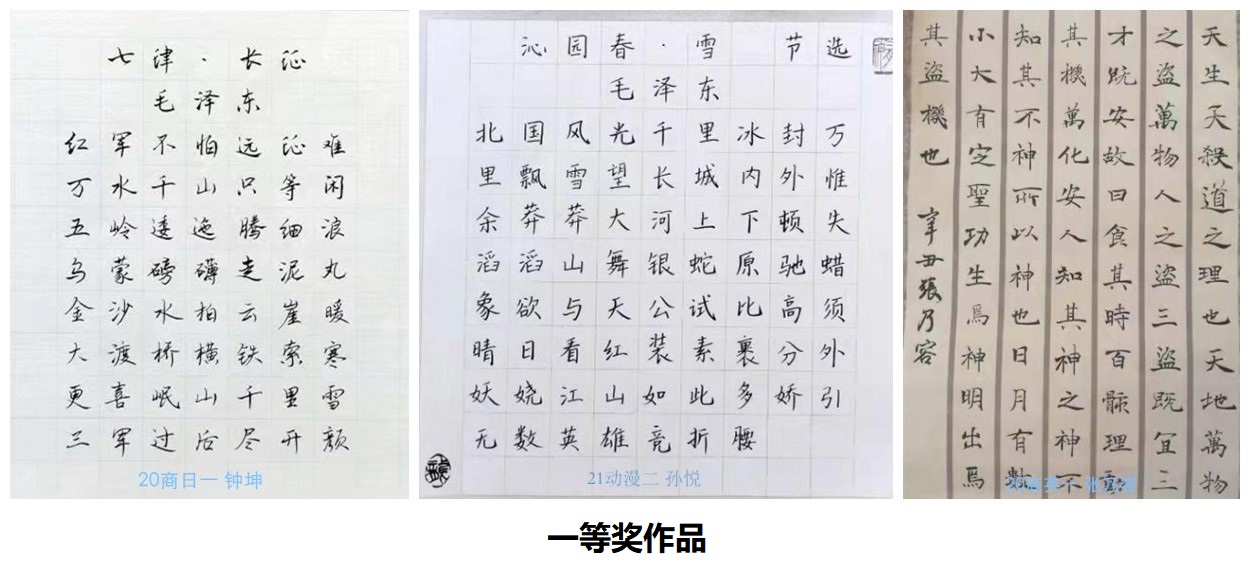 七律·长征
毛泽东
红军不怕远征难
万水千山只等闲
五岭逶迤腾细浪
乌蒙磅礴走泥丸
金沙水拍云崖暖
大渡桥横铁索寒
更喜岷山千里雪
三军过后尽开颜
20商日一 钟坤
沁园春·雪 节选
毛泽东
北国风光千里冰封万
里飘雪望长城内外惟
余莽莽大河上下顿失
滔滔山舞银蛇原驰蜡
象欲与天公试比高须
晴日看红装素裹分外
妖娆江山如此多娇引
无数英雄竞折腰
21动漫二 孙悦
天生天殺道之理也天地萬物
之盜萬物人之盜三盜既宜三
才既安故曰食其時百骸理動
其機萬化安人知其神之神不
知其不神所以神也日月有數
小大有定聖功生焉神明出焉
其盜機也 辛丑張乃容
一等奖作品